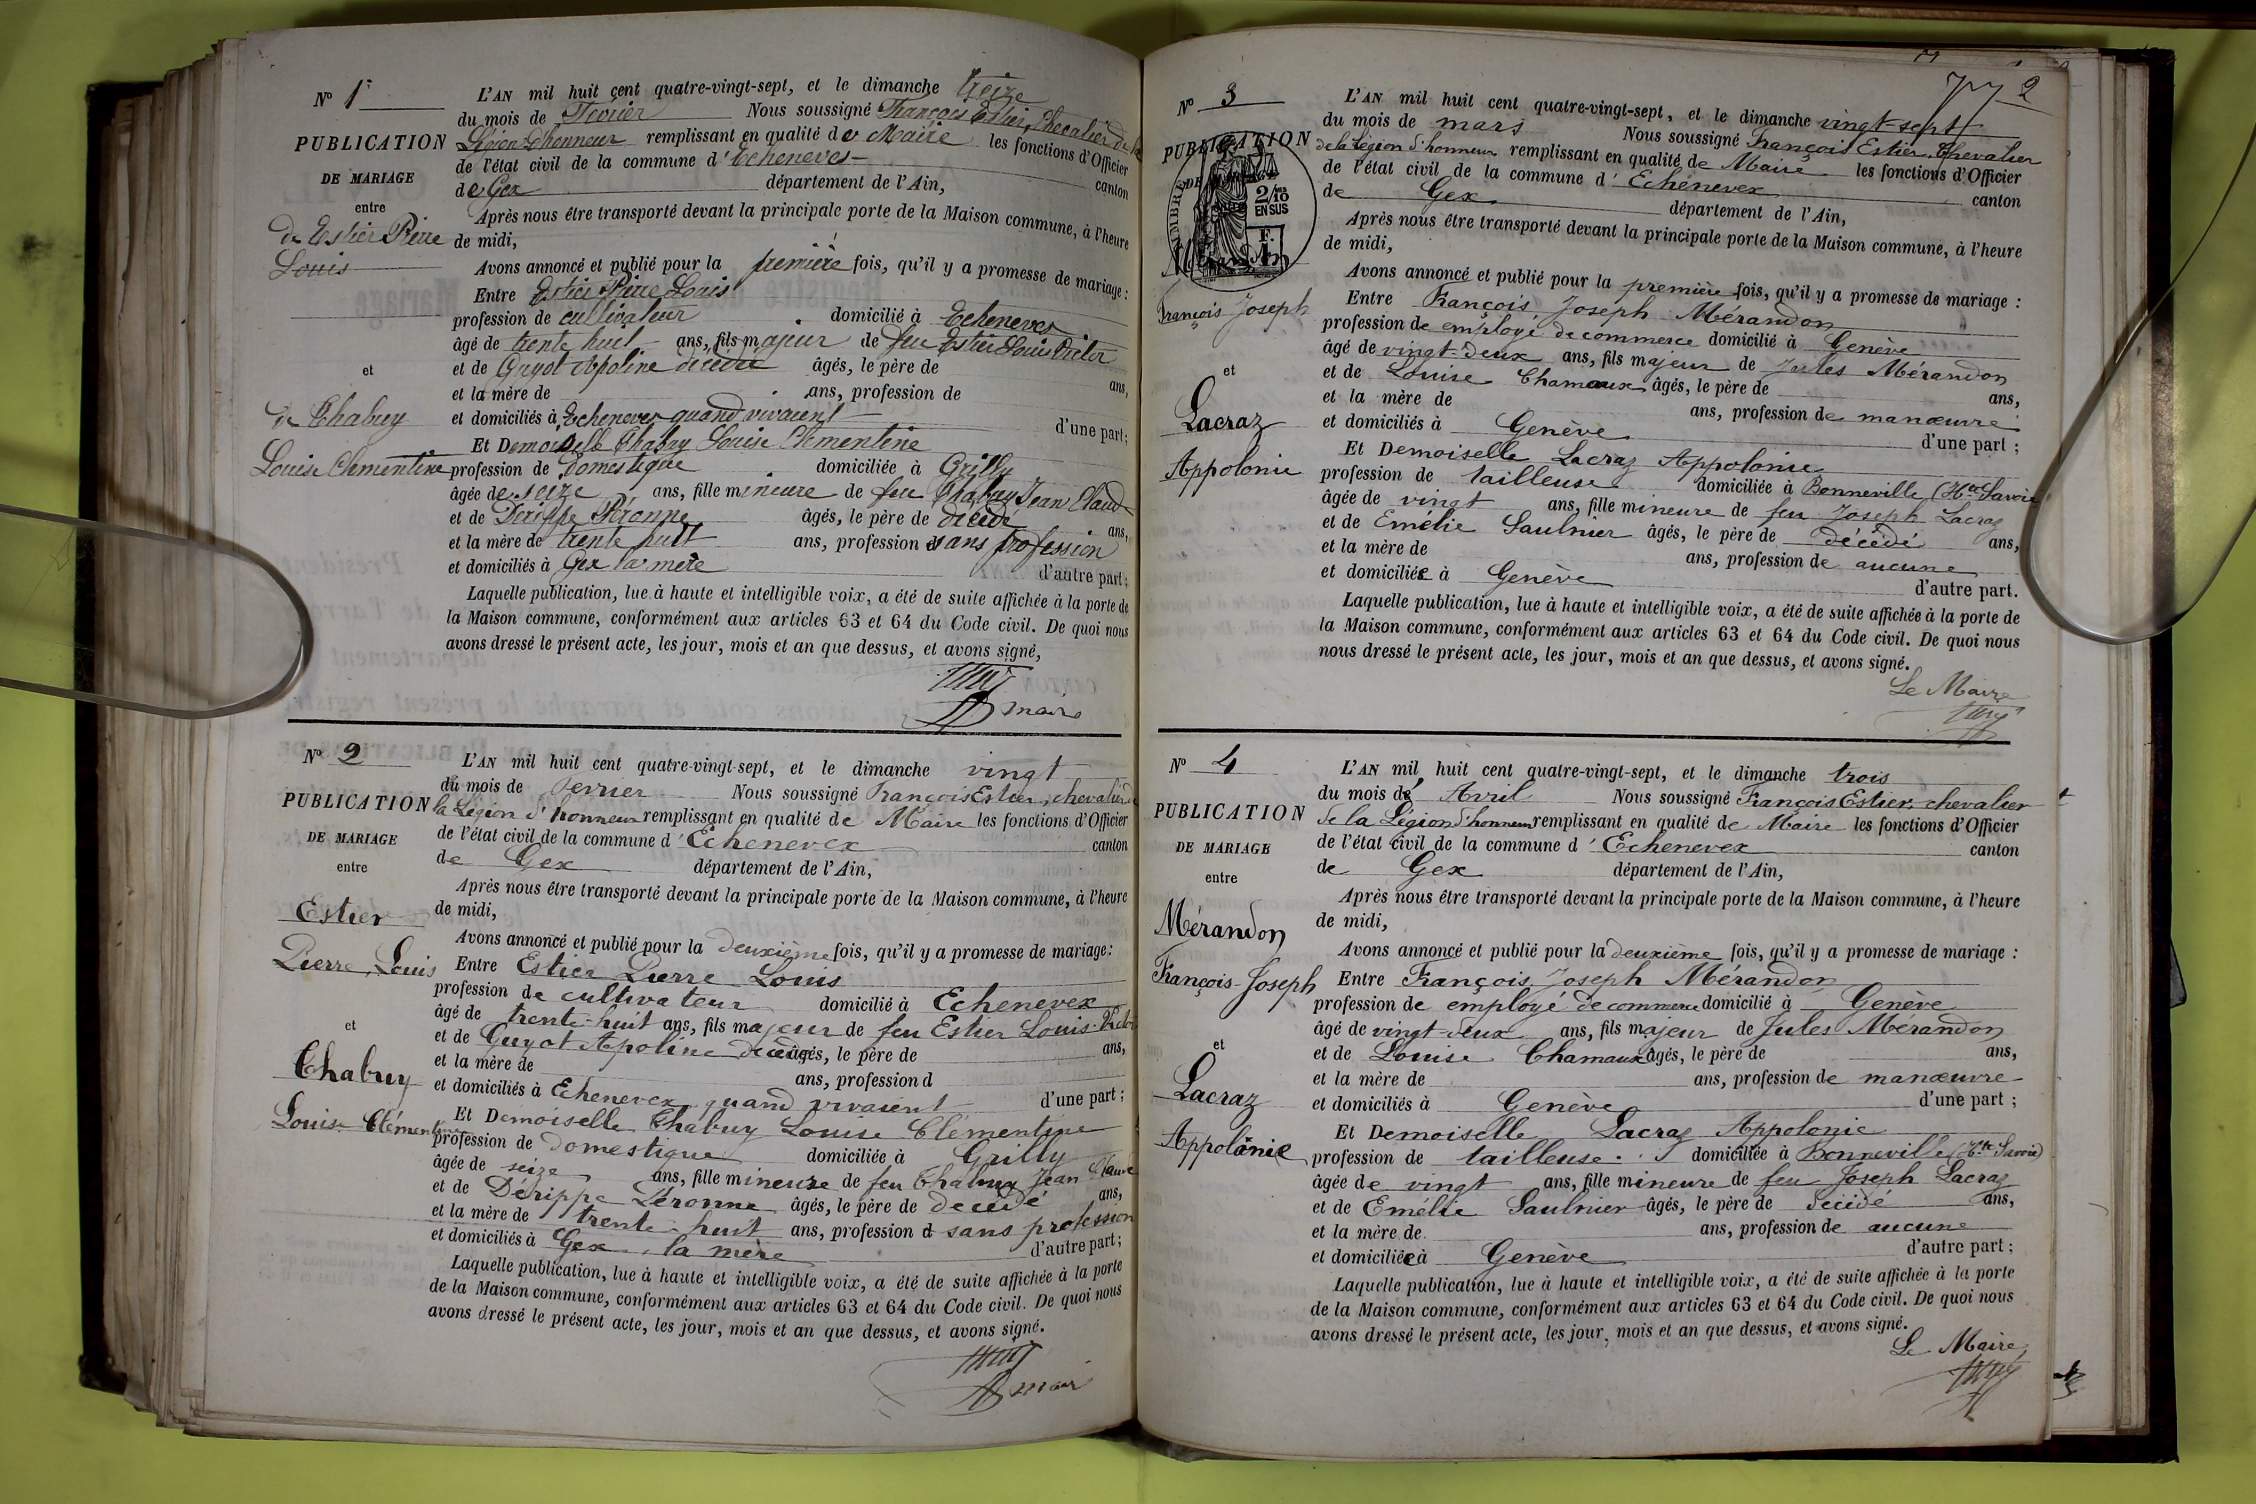 N° 1
PUBLICATION
DE MARIAGE
entre
de Estier Pierre
Louis
et
de Chabuy
Louise Clementine
L'AN mil huit cent quatre-vingt-sept, et le dimanche treize
du mois de Février Nous soussigné François Estier, Chevalier de la
Légion d'honneur remplissant en qualité de Maire les fonctions d'Officier
de l'état civil de la commune d'Echenevex canton
de Gex département de l'Ain,
Après nous être transporté devant la principale porte de la Maison commune, à l'heure
de midi,
Avons annoncé et publié pour la première fois, qu'il y a promesse de mariage :
Entre Estier Pierre Louis
profession de cultivateur domicilié à Echenevex
âgé de trente huit ans, fils majeur de feu Estier Louis Victor
et de Guyot Apoline décédée âgés, le père de ans,
et la mère de ans, profession de
et domiciliés à Echenevex quand vivaient d'une part;
Et Demoiselle Chabuy Louise Clementine
profession de Domestique domiciliée à Grilly
âgée de seize ans, fille mineure de feu Chabuy Jean Claude
et de Dérippe Péronne âgés, le père de décédé ans,
et la mère de trente huit ans, profession d sans profession
et domiciliés à Gex la mère d'autre part;
Laquelle publication, lue à haute et intelligible voix, a été de suite affichée à la porte de
la Maison commune, conformément aux articles 63 et 64 du Code civil. De quoi nous
avons dressé le présent acte, les jour, mois et an que dessus, et avons signé,
maire
N° 2
PUBLICATION
DE MARIAGE
entre
Estier
Pierre Louis
et
Chabuy
Louise Clémentine
L'AN mil huit cent quatre-vingt-sept, et le dimanche vingt
du mois de Fevrier Nous soussigné François Estier, chevalier de
la Légion d'honneur remplissant en qualité de Maire les fonctions d'Officier
de l'état civil de la commune d'Echenevex canton
de Gex département de l'Ain,
Après nous être transporté devant la principale porte de la Maison commune, à l'heure
de midi,
Avons annoncé et publié pour la deuxième fois, qu'il y a promesse de mariage:
Entre Estier Pierre Louis
profession de cultivateur domicilié à Echenevex
âgé de trente-huit ans, fils majeur de feu Estier Louis-Victor
et de Guyot Apoline décédée âgés, le père de ans,
et la mère de ans, profession d
et domiciliés à Echenevex quand vivaient d'une part;
Et Demoiselle Chabuy Louise Clémentine
profession de Domestique domiciliée à Grilly
âgée de seize ans, fille mineure de feu Chabuy Jean Claude
et de Dérippe Péronne âgés, le père de decédé ans,
et la mère de trente-huit ans, profession d sans profession
et domiciliés à Gex la mère d'autre part;
Laquelle publication, lue à haute et intelligible voix, a été de suite affichée à la porte
de la Maison commune, conformément aux articles 63 et 64 du Code civil. De quoi nous
avons dressé le présent acte, les jour, mois et an que dessus, et avons signé.
maire
77 2
N° 3
PUBLICATION
DE
TIMBRE
2/10
EN SUS
F.
François Joseph
et
Lacraz
Appolonie
L'AN mil huit cent quatre-vingt-sept, et le dimanche vingt-sept
du mois de mars Nous soussigné François Estier, Chevalier
de la Légion d'honneur remplissant en qualité de Maire les fonctions d'Officier
de l'état civil de la commune d'Echenevex canton
de Gex département de l'Ain,
Après nous être transporté devant la principale porte de la Maison commune, à l'heure
de midi,
Avons annoncé et publié pour la première fois, qu'il y a promesse de mariage :
Entre François, Joseph Mérandon
profession de employé de commerce domicilié à Genève
âgé de vingt-deux ans, fils majeur de Jules Mérandon
et de Louise Chamaux âgés, le père de ans,
et la mère de ans, profession de manœuvre
et domiciliés à Genève d'une part ;
Et Demoiselle Lacraz Appolonie
profession de tailleuse domiciliée à Bonneville (Hte Savoie
âgée de vingt ans, fille mineure de feu Joseph Lacraz
et de Emélie Saulnier âgés, le père de décédé ans,
et la mère de ans, profession de aucune
et domiciliée à Genève d'autre part.
Laquelle publication, lue à haute et intelligible voix, a été de suite affichée à la porte de
la Maison commune, conformément aux articles 63 et 64 du Code civil. De quoi nous
nous dressé le présent acte, les jour, mois et an que dessus, et avons signé.
Le Maire
N° 4
PUBLICATION
DE MARIAGE
entre
Mérandon
François-Joseph
et
Lacraz
Appolonie
L'AN mil huit cent quatre-vingt-sept, et le dimanche trois
du mois de Avril Nous soussigné François Estier, chevalier
de la Légion d'honneur remplissant en qualité de Maire les fonctions d'Officier
de l'état civil de la commune d'Echenevex canton
de Gex département de l'Ain,
Après nous être transporté devant la principale porte de la Maison commune, à l'heure
de midi,
Avons annoncé et publié pour la deuxième fois, qu'il y a promesse de mariage :
Entre François, Joseph Mérandon
profession de employé de commerce domicilié à Genève
âgé de vingt-deux ans, fils majeur de Jules Mérandon
et de Louise Chamaux âgés, le père de ans,
et la mère de ans, profession de manœuvre
et domiciliés à Genève d'une part ;
Et Demoiselle Lacraz Appolonie
profession de tailleuse domiciliée à Bonneville (Hte Savoie)
âgée de vingt ans, fille mineure de feu Joseph Lacraz
et de Emélie Saulnier âgés, le père de décédé ans,
et la mère de ans, profession de aucune
et domiciliée à Genève d'autre part ;
Laquelle publication, lue à haute et intelligible voix, a été de suite affichée à la porte
de la Maison commune, conformément aux articles 63 et 64 du Code civil. De quoi nous
avons dressé le présent acte, les jour, mois et an que dessus, et avons signé.
Le Maire